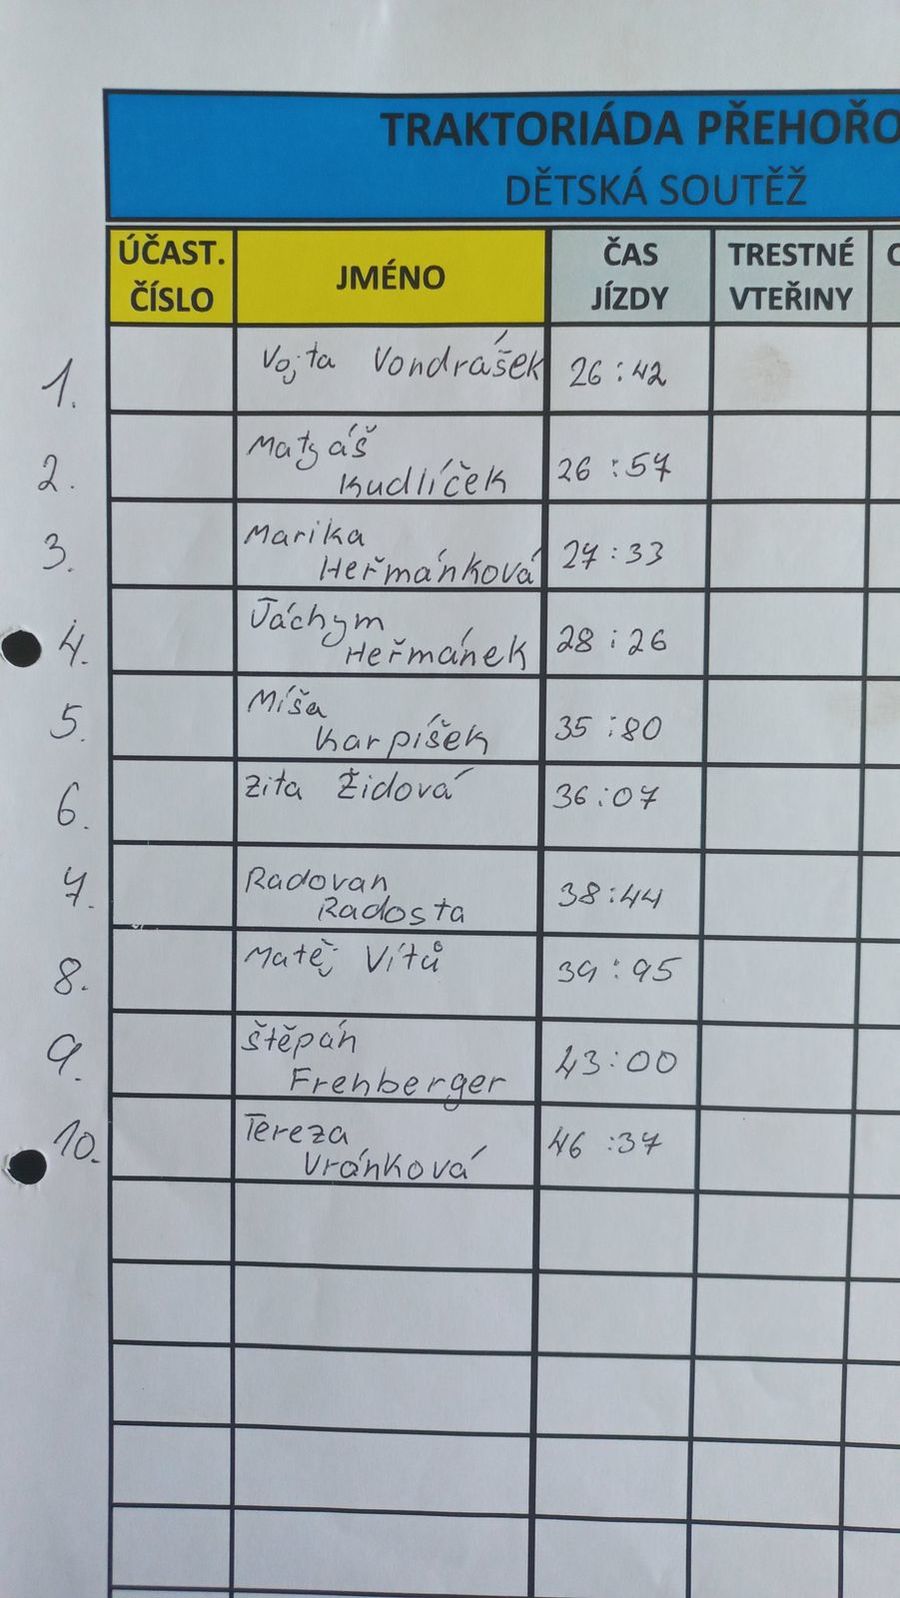 TRAKTORIÁDA PŘEHOŘO
DĚTSKÁ SOUTĚŽ
ÚČAST. ČÍSLO JMÉNO ČAS JÍZDY TRESTNÉ VTEŘINY
1. Vojta Vondrášek 26:42
2. Matyáš Kudlíček 26:57
3. Marika Heřmánková 27:33
4. Jáchym Heřmánek 28:26
5. Míša Karpíšek 35:80
6. Zita Židová 36:07
7. Radovan Radosta 38:44
8. Matěj Vítů 39:95
9. Štěpán Frehberger 43:00
10. Tereza Vránková 46:37